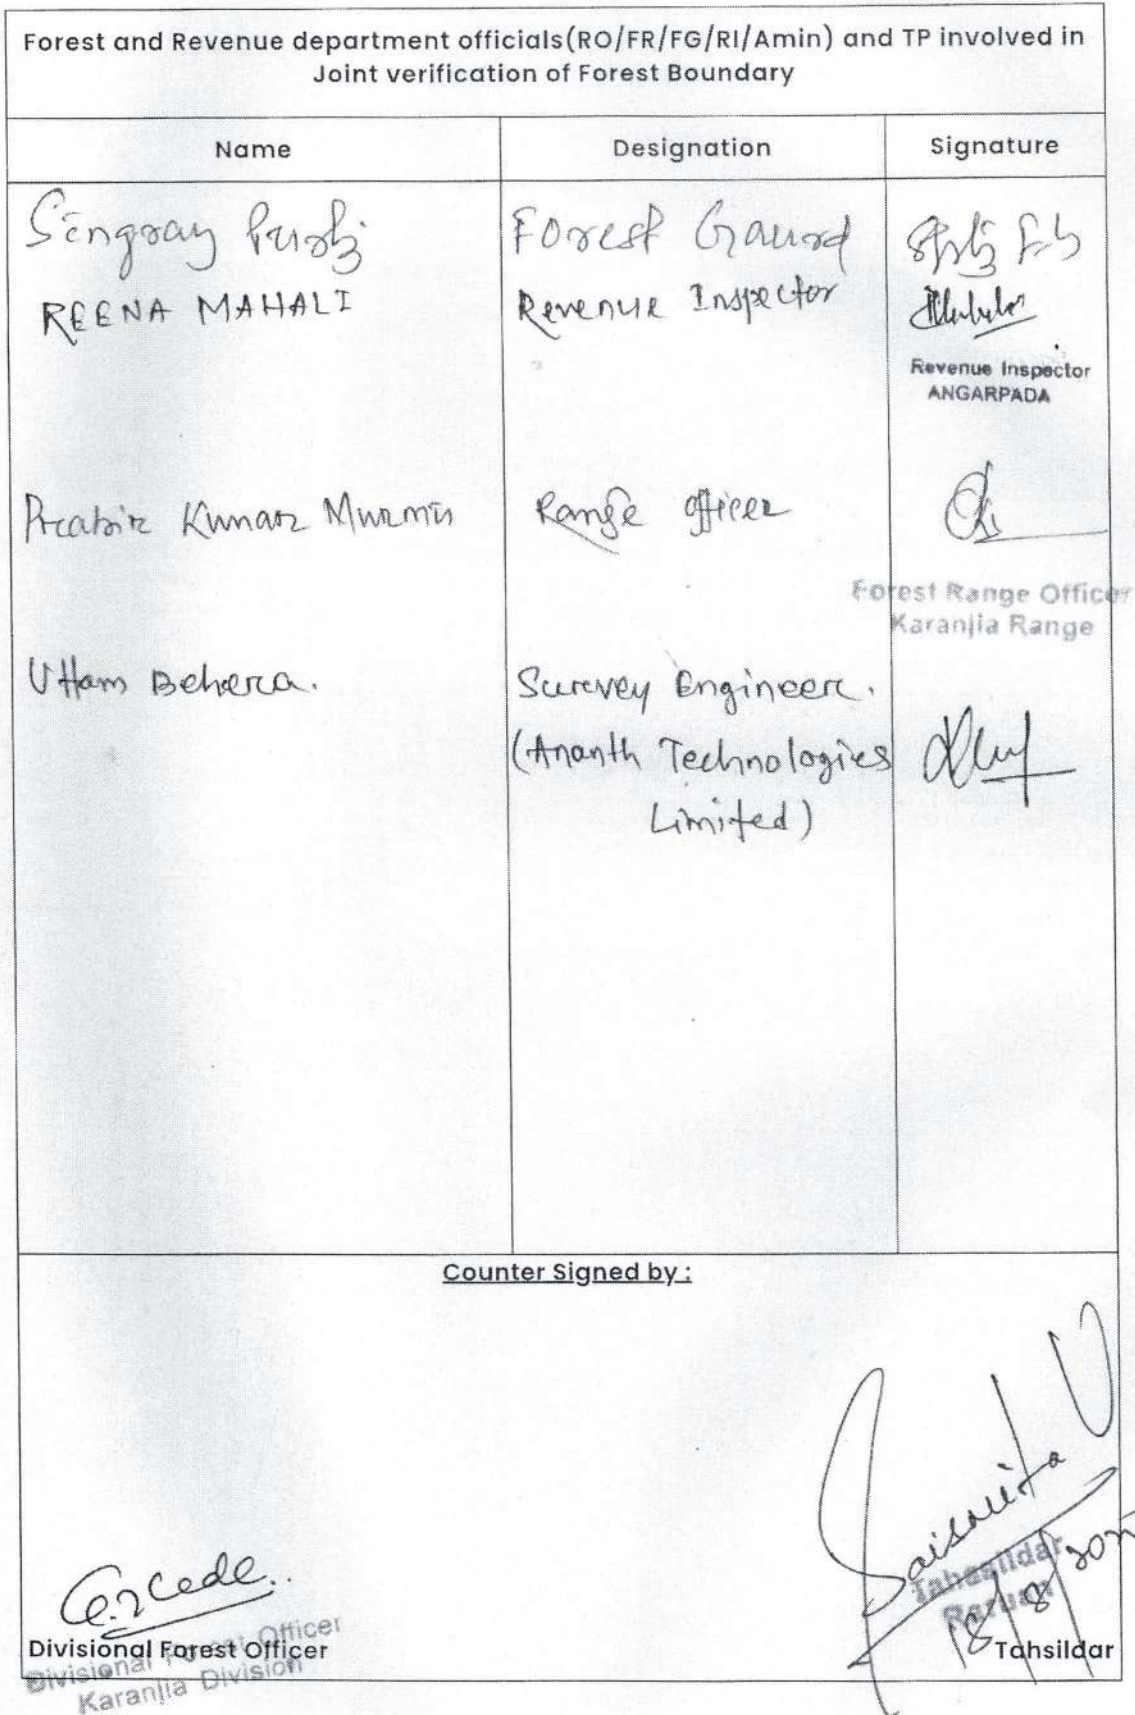 Forest and Revenue department officials(RO/FR/FG/RI/Amin) and TP involved in
Joint verification of Forest Boundary
Name Designation Signature
Singray Forest Gaurd
REENA MAHALI Revenue Inspector
Revenue Inspector
ANGARPADA
Prabir Kumar Murmu Range Officer
Forest Range Officer
Karanjia Range
Uttam Behera. Survey Engineer.
(Ananth Technologies
Limited)
Counter Signed by :
Saismita
Tahasildar
18/8/
Divisional Forest Officer Tahsildar
Divisional Forest Officer
Karanjia Division